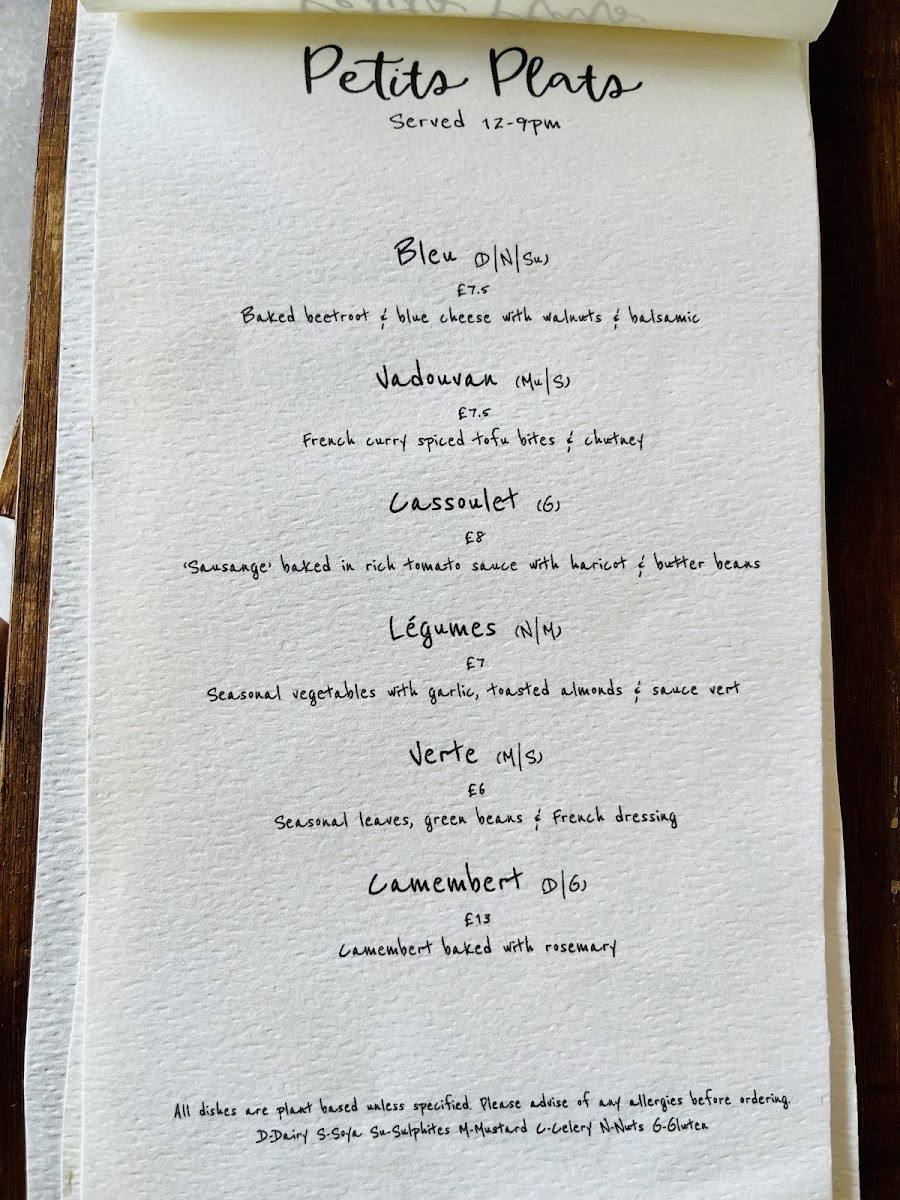 Petits Plats
Served 12-9pm
Bleu (D|N|Su)
£7.5
Baked beetroot & blue cheese with walnuts & balsamic
Vadouvan (Mu|S)
£7.5
French curry spiced tofu bites & chutney
Cassoulet (G)
£8
'Sausange' baked in rich tomato sauce with haricot & butter beans
Légumes (N|M)
£7
Seasonal vegetables with garlic, toasted almonds & sauce vert
Verte (M|S)
£6
Seasonal leaves, green beans & French dressing
Camembert (D|G)
£13
Camembert baked with rosemary
All dishes are plant based unless specified. Please advise of any allergies before ordering.
D-Dairy S-Soya Su-Sulphites M-Mustard C-Celery N-Nuts G-Gluten